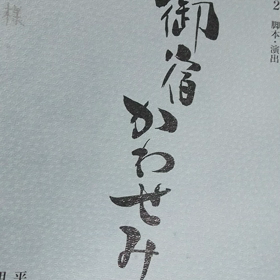 2 脚本・演出
御宿かわせみ
様